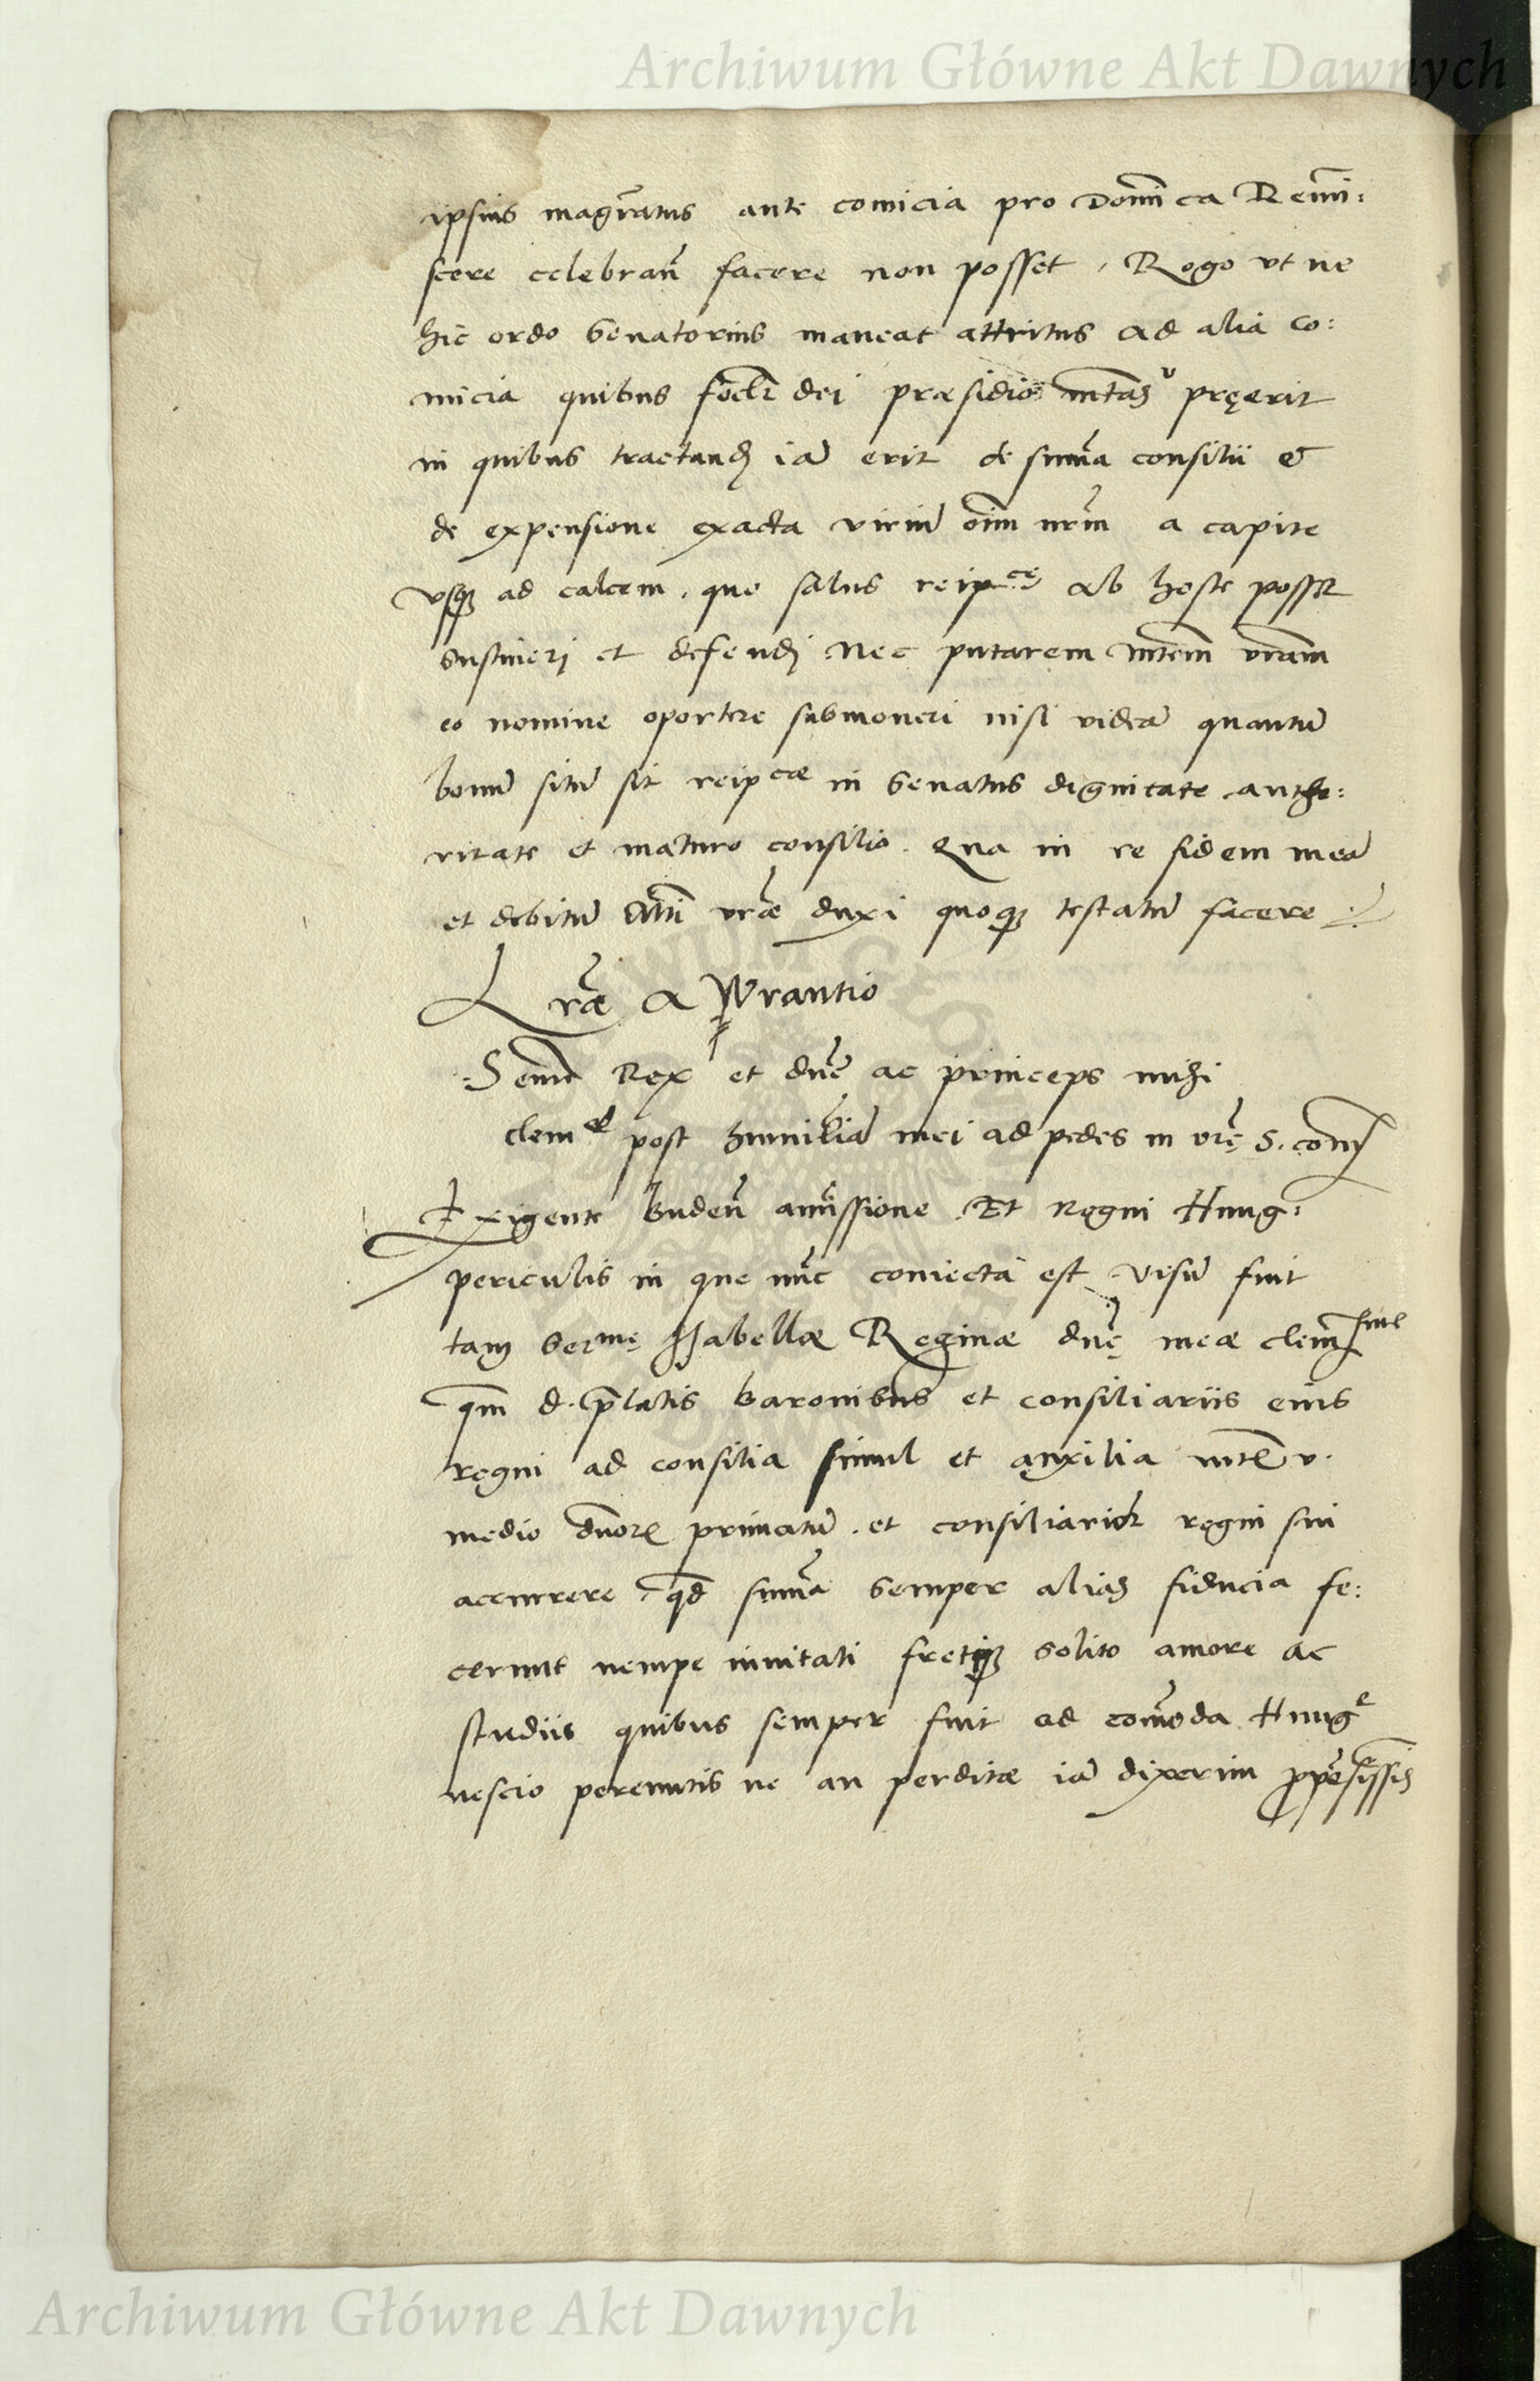 Archiwum Główne Akt Dawnych
ipsius magr̃atus ante comicia pro Domĩca Remĩ:
scere celebrañ facere non posset, Rogo vt ne
hic ordo senatorius maneat attritus ad alia co:
micia quibus dei præsidio mtas v pręerit
in quibus tractand iã erit de sum̃a consilii &
de expensione exacta viriũ oĩm nr̃m a capite
vsq ad calcem, quo salus reip^ce ab hoste posset
sustineri et defendi Nec putarem mtem̃ vr̃am
eo nomine oportere submoneri nisi videã quantũ
bonũ sitũ sit reip^cæ in senatus dignitate autho:
ritate et maturo consilio. Qua in re fidem meã
et debitũ Mti vr̃æ duxi quoq testatũ facere
Lr̃æ a Wrantio
Sem̃e Rex et dñe ac princeps mihi
clem^e post humiliã mei ad pedes m vrę̃ S. com̃
Exigente Budeñ amĩssione Et Regni Hung:
periculis in que nũc coniecta est visũ fuit
tam Ser^mę Isabellæ Reginæ dnę̃ meæ clem̃
qm̃ d. p̃latis baronibus et consiliariis eius
regni ad consilia simul et auxilia mtẽ v.
medio duor primatũ et consiliarior regni sui
accurrere, qd̃ sum̃a semper alias fiducia fe:
cerunt nempe inuitati fretiq solito amore ac
studiis quibus semper fuit ad com̃oda Hung^e
nescio pereuntis ne an perditæ iã dixerim
Archiwum Główne Akt Dawnych